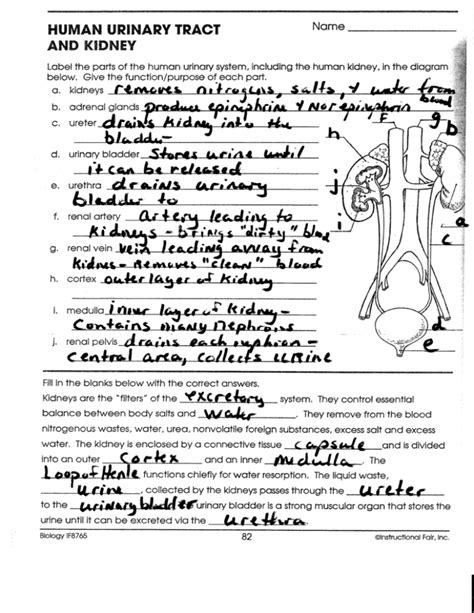 HUMAN URINARY TRACT Name
AND KIDNEY
Label the parts of the human urinary system, including the human kidney, in the diagram
below. Give the function/purpose of each part.
a. kidneys removes nitrogens, salts, & water from
blood
b. adrenal glands produce epinephrine & Norepinephrin
c. ureter drains Kidney into the
bladder
d. urinary bladder Stores urine until
it can be released
e. urethra drains urinary
bladder to
f. renal artery artery leading to
Kidneys - brings "dirty" blood
g. renal vein vein leading away from
Kidney - Removes "clean" blood
h. cortex outer layer of Kidney
i. medulla inner layer of Kidney -
Contains many Nephrons
j. renal pelvis drains each nephron -
central area, collects urine
F
g
b
h
j
i
a
c
d
e
Fill in the blanks below with the correct answers.
Kidneys are the "filters" of the excretory system. They control essential
balance between body salts and water. They remove from the blood
nitrogenous wastes, water, urea, nonvolatile foreign substances, excess salt and excess
water. The kidney is enclosed by a connective tissue capsule and is divided
into an outer Cortex and an inner Medulla. The
Loop of Henle functions chiefly for water resorption. The liquid waste,
urine, collected by the kidneys passes through the ureter
to the urinary bladder urinary bladder is a strong muscular organ that stores the
urine until it can be excreted via the urethra.
Biology IF8765 82 ©Instructional Fair, Inc.